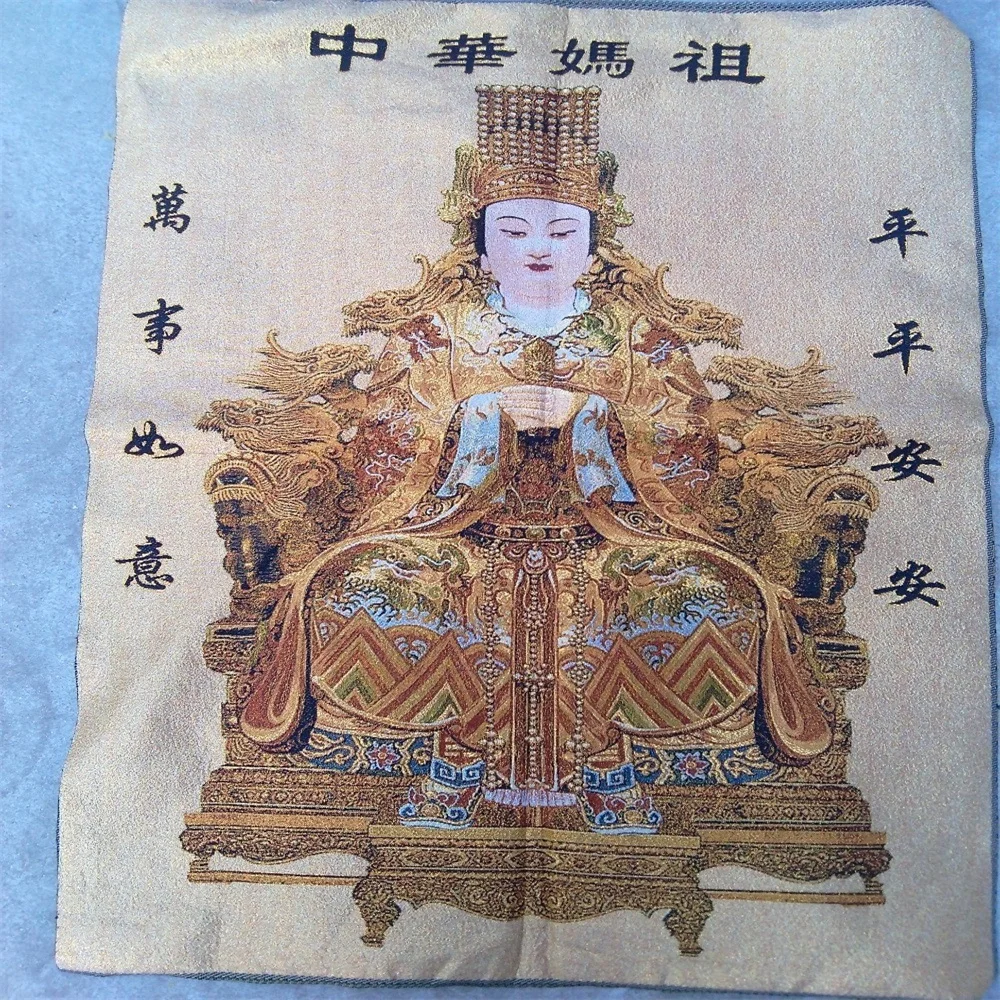 中華媽祖
平平安安
萬事如意